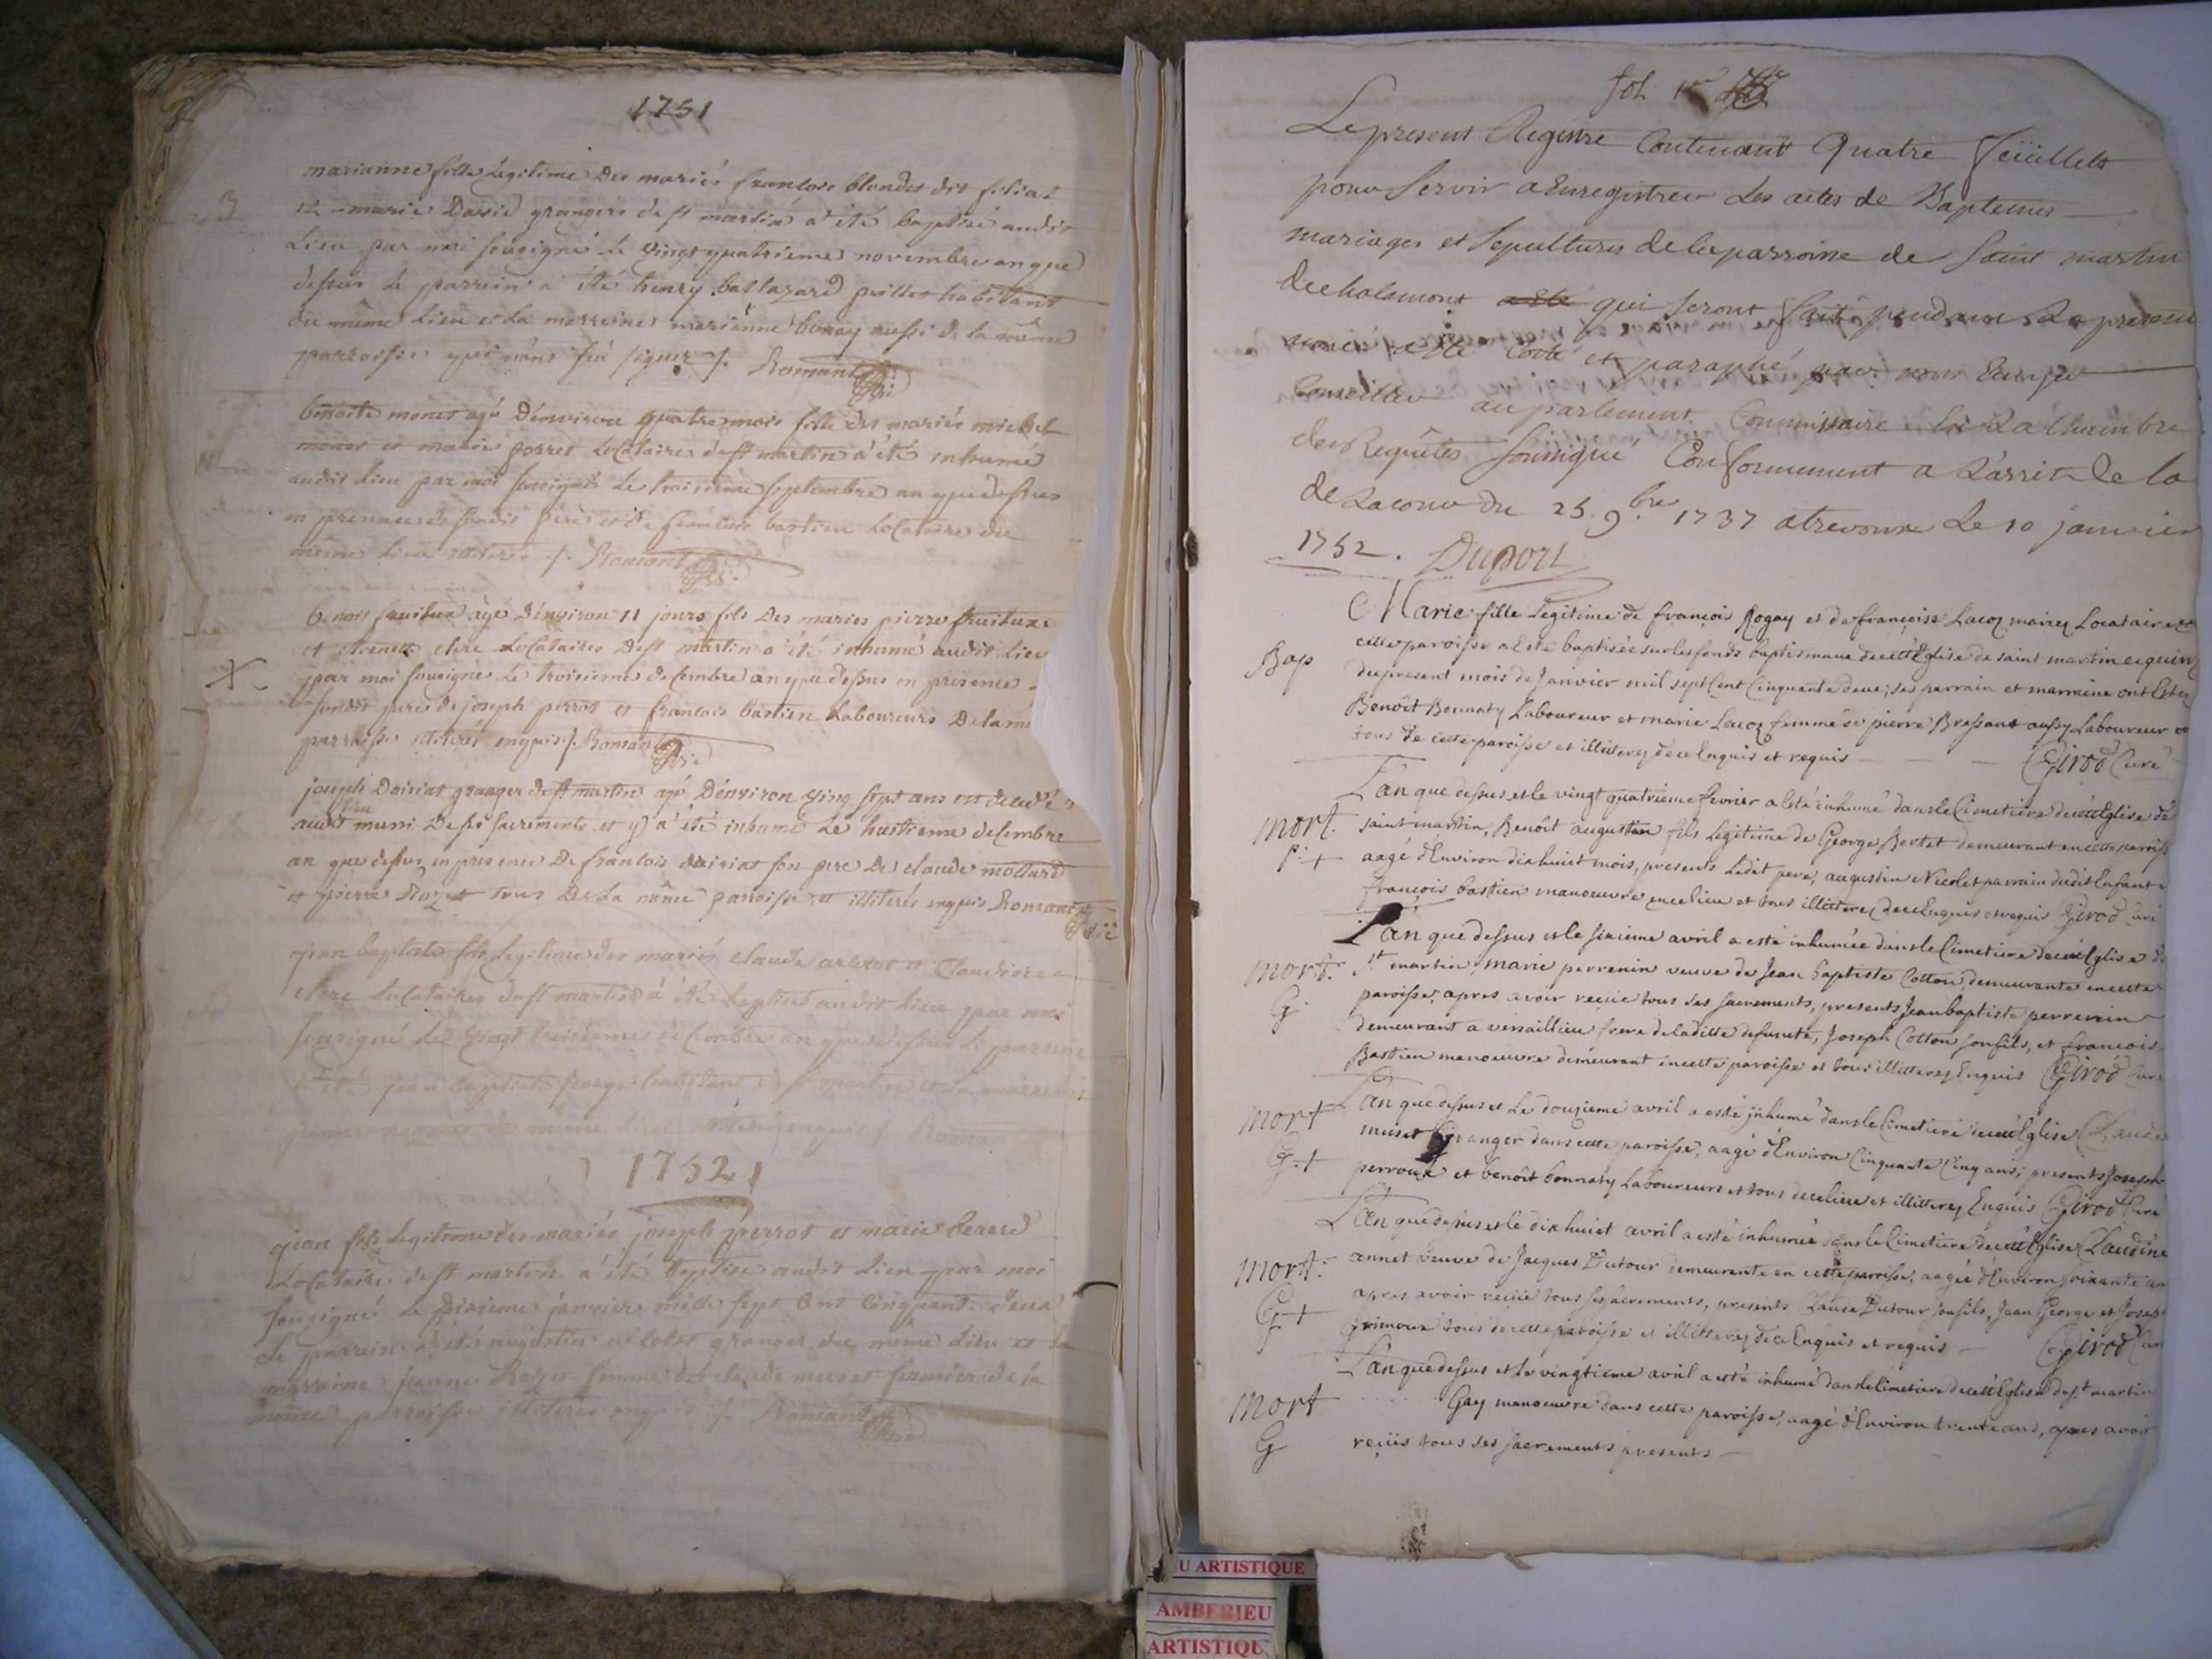 1751
marianne fille legitime des mariés françois blondet dit filiat
et marie David grangers de st martin a été baptisé audit
Lieu par moi sousigné le vingt quatrieme novembre an que
dessus le parrein a été henry baltazard habitant
du même lieu et la marreine marianne bonay aussi de la même
parroisse signer ./. Romant
benoite monet agé d'environ quatre mois fille des mariés michel
monet et marie porret Locataires de st martin a été inhumé
audit lieu par moi sousigné le troisieme septembre an que dessus
en presence dudit père et de francois bastien Locataire du
même lieu illiterés ./. Romant
X
benoit fruitux âgé d'environ 11 jours fils des mariés pierre fruitux
et clere Locataires de st martin a été inhumé audit lieu
par moi sousigné le troisieme decembre an que dessus en presence
dudit de joseph perrot et francois bastien Laboureurs de la
parroisse illiterés enquis ./. Romant
joseph Daisiat granger de st martin agé d'environ vint sept ans est decedé
audit lieu muni de ses sacrements et y a été inhumé le huitieme decembre
an que dessus en presence de francois daisiat son pere de claude mollard
et pierre Rozet tous de la même parroisse et illiterés enquis Romant
jean baptiste fils legitime des mariés claude et Claudine
clere Locataires de st martin a été baptisé audit lieu par moi
sousigné le vingt troisieme decembre an que dessus le parrein
a été jean baptiste george habitant de st martin et la marreine
du même lieu illiterés enquis ./. Romant
1752
jean fils legitime des mariés joseph perrot et marie bererd
Locataire de st martin a été baptise audit lieu par moi
sousigné le janvier mille sept cent cinquante deux
le parrein a été augustin nicolet granger du même lieu et la
marreine jeanne Rozet femme de claude muset fermier de la
même parroisse illiterés enquis ./. Romant
fol 1er
Le present Registre Contenant Quatre feüillets
pour servir a Enregistrer Les actes de Baptemes
mariages et sepultures de la parroisse de saint martin
de chalamont qui seront faits pendant La presente
année a été Coté et paraphé par nous Ecuyer
Conseiller au parlement Commissaire La Chambre
des Requêtes soussigné Conformement a L'arret de la
de La cour du 25. 9bre 1737 a trevoux Le 10 janvier
1752. Duport
Bap
Marie fille Legitime de françois Rogay et de françoise Lacoz mariez Locataires
cette paroisse a Esté baptisée sur les fonds baptismaux de cette Eglise de saint martin ce quinz
du present mois de Janvier mil sept Cent Cinquante deux; ses parrain et marraine ont Estez
Benoît Bonnaty Laboureur et marie Lacoz femme de pierre Bressant aussy Laboureur
tous de cette paroisse et illitterez de ce Enquis et requis Girod Curé
mort.
L'an que dessus et le vingt quatrieme fevrier a Eté inhumé dans le Cimetiere de cette Eglise de
saint martin, Benoît augustin fils Legitime de George Bertet demeurant en cette paroisse
aagé d'Environ dix huict mois, presents Ledit pere, augustin Nicolet parrain dudit Enfant
francois bastien manoeuvre en ce lieu et tous illitterez de ce Enquis et requis Girod Curé
mort.
G
L'an que dessus et le sixieme avril a esté inhumée dans le Cimetiere de cette Eglise de
St martin, marie perrenin veuve de Jean baptiste Cotton, demeurante en cette
paroisse, apres avoir reciüe tous ses sacrements, presents Jean baptiste perrenin
demeurant a versaillieu frere de laditte defunte, Joseph Cotton son fils, et francois
Bastien manoeuvre demeurant en cette paroisse et tous illitterez Enquis Girod Curé
mort
G. +
L'an que dessus et Le douzieme avril a esté inhumé dans le Cimetiere de cette Eglise Claude
muset Granger dans cette paroisse, aagé d'Environ Cinquante Cinq ans; presents Joseph
perroux et benoît bonnaty Laboureurs et tous de ce lieu et illitterez Enquis Girod Curé
mort.
G +
L'an que dessus et le dix huict avril a esté inhumée dans le Cimetiere de cette Eglise Claudine
annet veuve de Jacques Dutour demeurente en cette paroisse, aagée d'Environ soixante ans
apres avoir reciüe tous ses sacrements, presents Claude Dutour son fils, Jean George et Joseph
grimoux tous de cette paroisse et illitterez de ce Enquis et requis Girod Curé
mort
G
L'an que dessus et Le vingtieme avril a esté inhumé dans le Cimetiere de cette Eglise de st martin
.... Gay manoeuvre dans cette paroisse, aagé d'Environ trente ans, apres avoir
reciüs tous ses sacrements presents
U ARTISTIQUE
AMBERIEU
ARTISTIQU